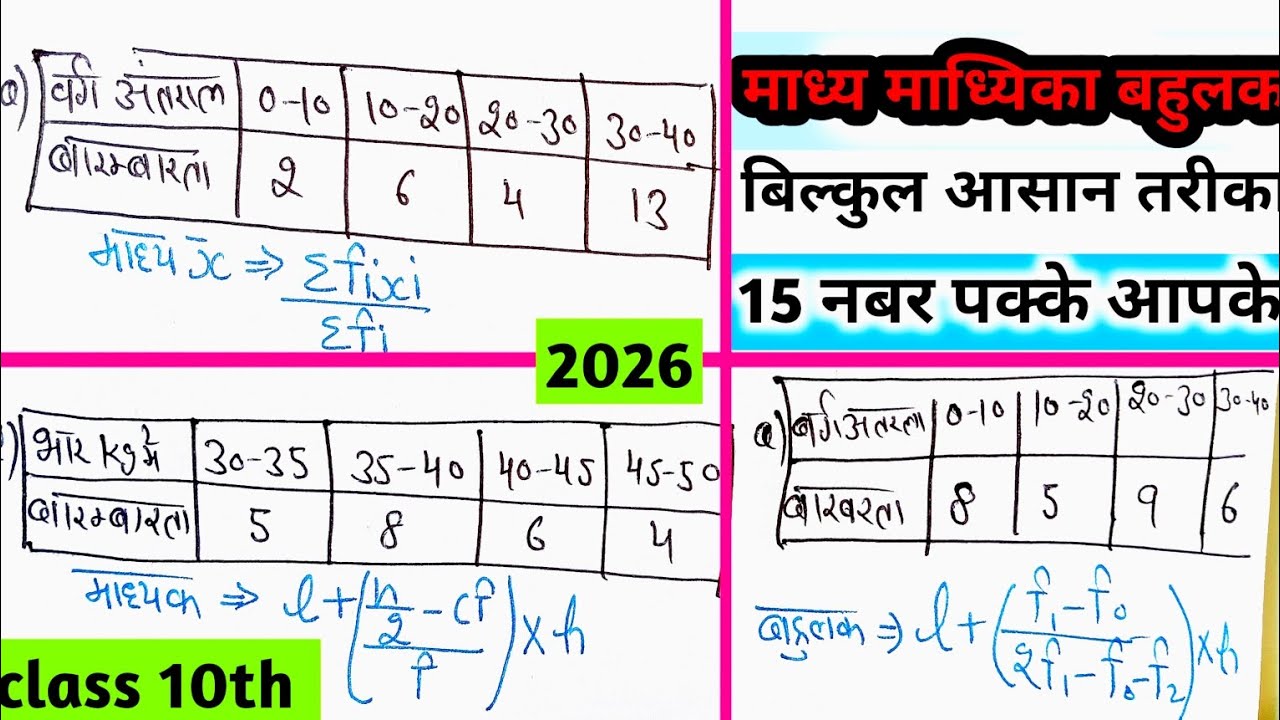 a) वर्ग अंतराल 0-10 10-20 20-30 30-40
बारम्बारता 2 6 4 13
माध्य x̄ ⇒ Σfixi
Σfi
माध्य माध्यिका बहुलक
बिल्कुल आसान तरीका
15 नबर पक्के आपके
2026
भार kg में 30-35 35-40 40-45 45-50
बारम्बारता 5 8 6 4
माध्यक ⇒ l+(n/2-cf/f)×h
class 10th
a) वर्ग अतराल 0-10 10-20 20-30 30-40
बारबरता 8 5 9 6
बहुलक ⇒ l+(f₁-f₀/2f₁-f₀-f₂)×h